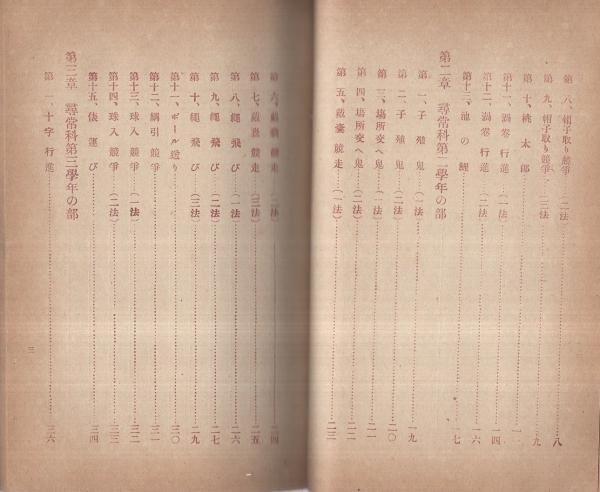 第八、帽子取り競爭（二法）……八
第九、帽子取り競爭（三法）……九
第十、桃太郎……一
第十一、渦卷行進（一法）……一四
第十二、渦卷行進（二法）……一六
第十三、池の鯉……一七
第二章　尋常科第二學年の部
第一、子殖鬼（一法）……一九
第二、子殖鬼（二法）……二〇
第三、場所変へ鬼（一法）……二一
第四、場所変へ鬼（二法）……二二
第五、蔽嚢競走（一法）……二三
第六、蔽嚢競走（二法）……二四
第七、蔽嚢競走（三法）……二五
第八、繩飛び（一法）……二六
第九、繩飛び（二法）……二七
第十、繩飛び（三法）……二九
第十一、ボール送り……三〇
第十二、綱引競爭……三一
第十三、球入競爭（一法）……三二
第十四、球入競爭（二法）……三三
第十五、俵運び……三四
第三章　尋常科第三學年の部
第一、十字行進……三六
三